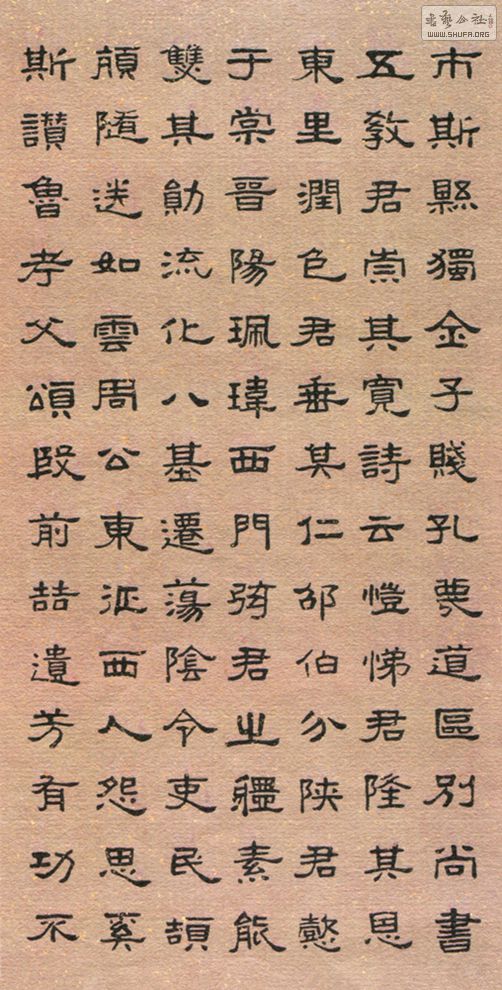 市斯縣獨全子賤孔蔑道區別尚書
五教君崇其寬詩云愷悌君隆其恩
東里潤色君垂其仁邵伯分陝君懿
于棠晉陽珮瑋西門弦君之體素能
雙其勛流化八基遷蕩陰令吏民頡
頏隨送如雲周公東征西人怨思奚
斯讚魯孝父頌殷前喆遺芳有功不
书艺公社
WWW.SHUFA.ORG